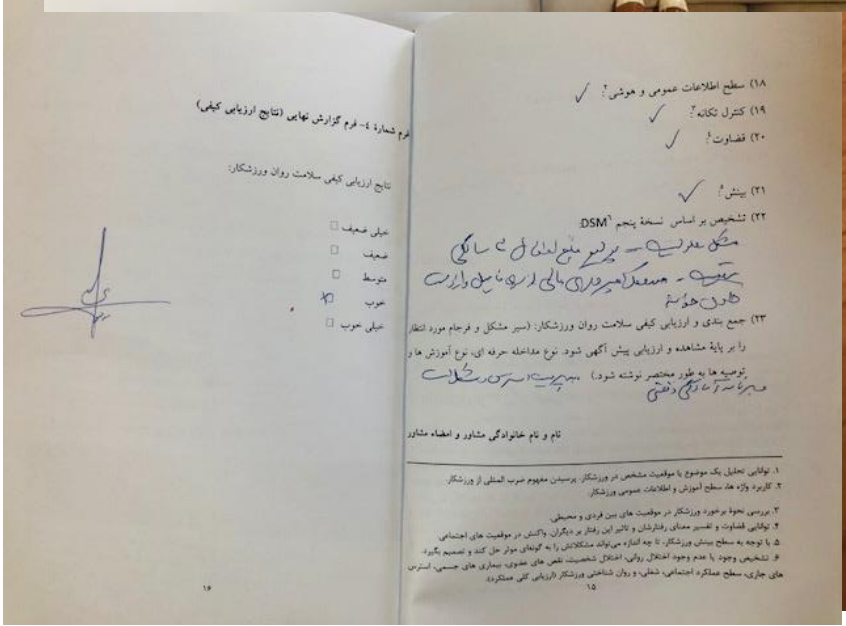 ۱۸) سطح اطلاعات عمومی و هوشی۲:
۱۹) کنترل تکانه۳:
۲۰) قضاوت۴:
۲۱) بینش۵:
۲۲) تشخیص بر اساس نسخهٔ پنجم DSM۶:
مشکل
مالی
۲۳) جمع بندی و ارزیابی کیفی سلامت روان ورزشکار: (سیر مشکل و فرجام مورد انتظار
را بر پایهٔ مشاهده و ارزیابی پیش آگهی شود. نوع مداخله حرفه ای، نوع آموزش ها و
توصیه ها به طور مختصر نوشته شود.)
نام و نام خانوادگی مشاور و امضاء مشاور
۱. توانایی تحلیل یک موضوع یا موقعیت مشخص در ورزشکار. پرسیدن مفهوم ضرب المثلی از ورزشکار.
۲. کاربرد واژه ها، سطح آموزش و اطلاعات عمومی ورزشکار.
۳. بررسی نحوهٔ برخورد ورزشکار در موقعیت های بین فردی و محیطی.
۴. توانایی قضاوت و تفسیر معنای رفتارشان و تاثیر این رفتار بر دیگران. واکنش در موقعیت های اجتماعی.
۵. با توجه به سطح بینش ورزشکار، تا چه اندازه می‌تواند مشکلاتش را به گونه‌ای موثر حل کند و تصمیم بگیرد.
۶. تشخیص وجود یا عدم وجود اختلال روانی، اختلال شخصیت، نقص های عضوی، بیماری های جسمی، استرس
های جاری، سطح عملکرد اجتماعی، شغلی، و روان شناختی ورزشکار (ارزیابی کلی عملکرد).
۱۵
فرم شمارهٔ ۴- فرم گزارش نهایی (نتایج ارزیابی کیفی)
نتایج ارزیابی کیفی سلامت روان ورزشکار:
خیلی ضعیف □
ضعیف □
متوسط □
خوب □
خیلی خوب □
۱۶